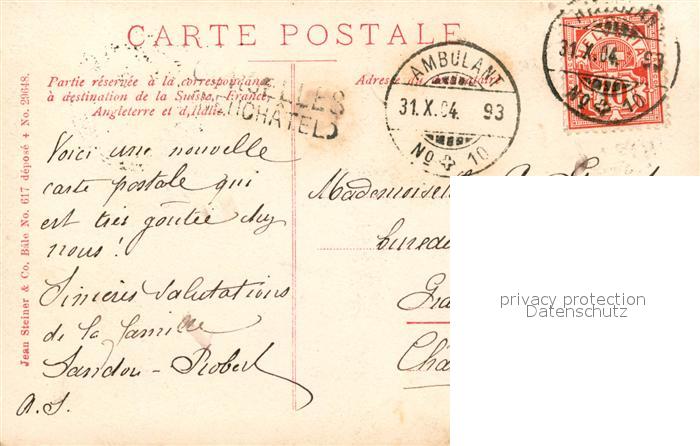 CARTE POSTALE
Partie réservée à la correspondance
à destination de la Suisse, France,
Angleterre et d'Italie.
Adresse du
AMBULANT
31.X.04. 93
No 10
31.X.04. 93
No 10
HELVETIA
10
Voici une nouvelle
carte postale qui
est très goûtée chez
nous !
Sincères salutations
de la famille
Sandoz-Robert
A. S.
Mademoiselle
bureau
Jean Steiner & Co. Bâle No. 617 déposé + No. 29648.
privacy protection
Datenschutz